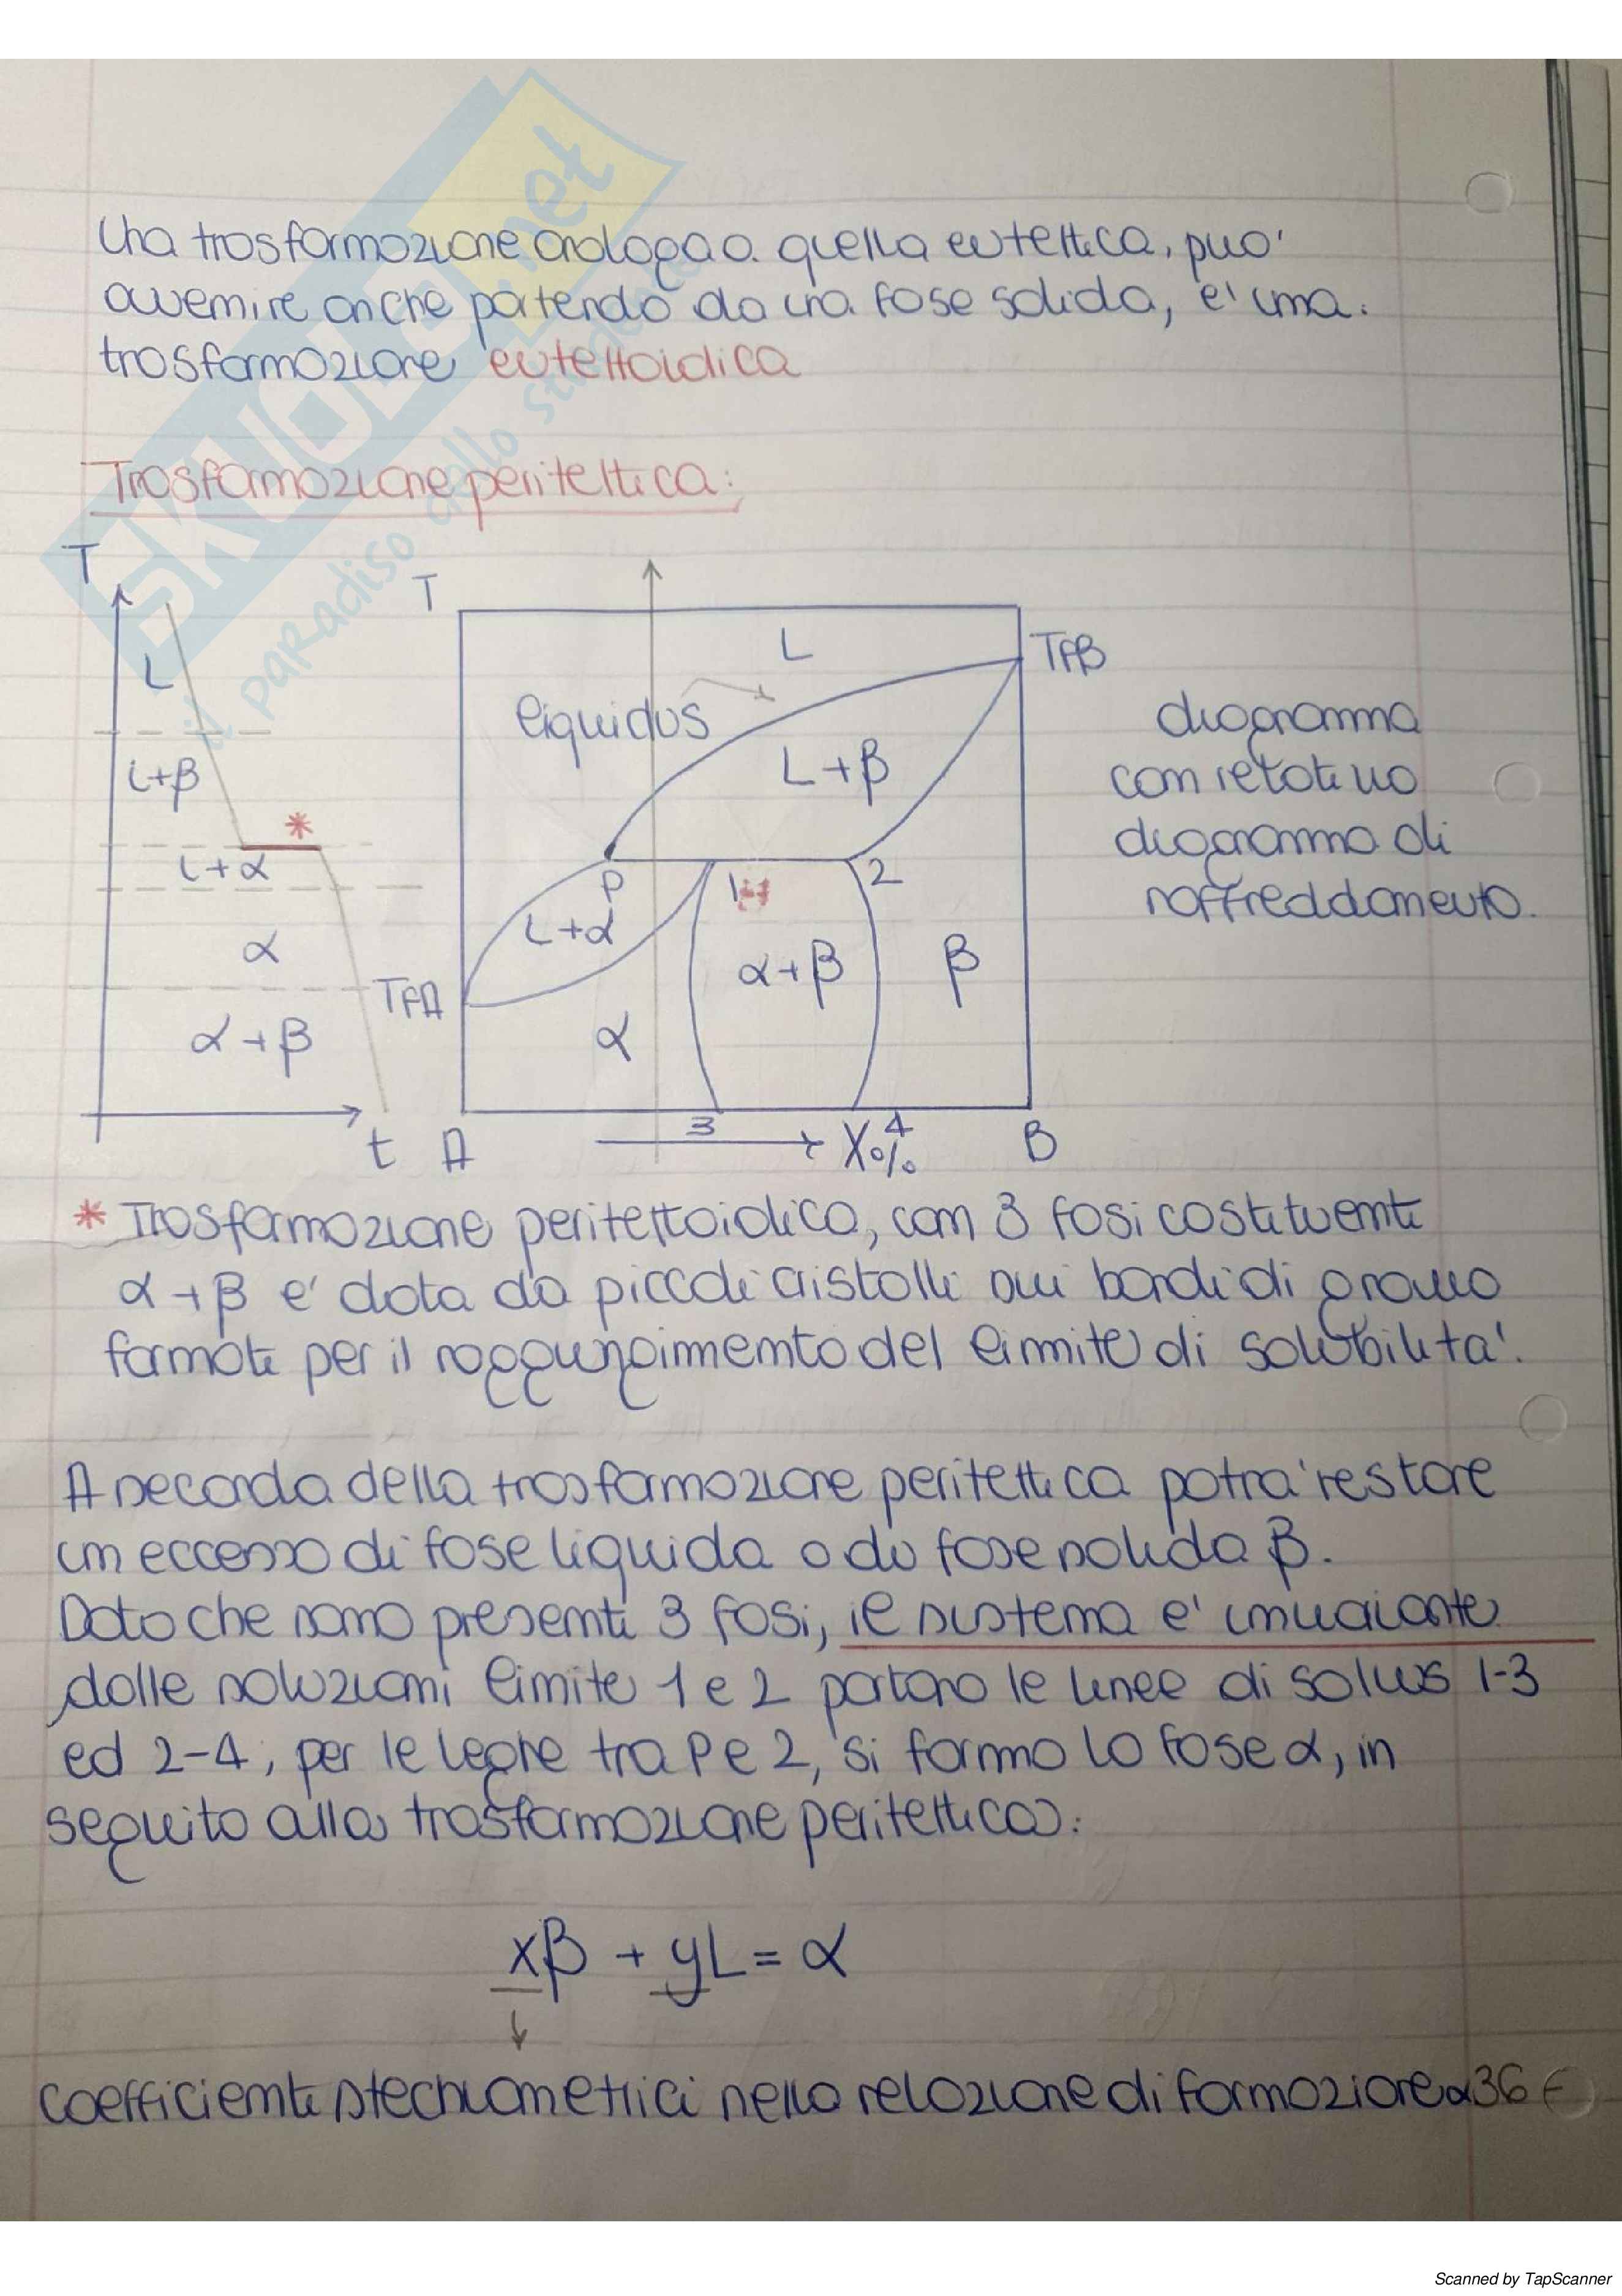 Una trasformazione analoga a quella eutettica, puo'
avvenire anche partendo da una fase solida, e' una
trasformazione eutettoidica
Trasformazione peritettica:
T
T
L
L
TfB
liquidus
diagramma
L+β
L+β
con relativo
*
diagramma di
L+α
P
1
2
raffreddamento.
L+α
α
α+β
β
TfA
α+β
α
t
A
3
X%
4
B
* Trasformazione peritettoidica, con 3 fasi costituente
α+β e' data da piccoli cristalli sui bordi di grano
formati per il raggiungimento del limite di solubilita'.
A seconda della trasformazione peritettica potra' restare
un eccesso di fase liquida o di fase solida β.
Dato che sono presenti 3 fasi, il sistema e' invariante
dalle soluzioni limite 1 e 2 partono le linee di solvus 1-3
ed 2-4, per le leghe tra P e 2, si forma la fase α, in
seguito alla trasformazione peritettica:
xβ + yL = α
coefficienti stechiometrici nella relazione di formazione α 36
SKUOLA.net
il paradiso dello studente
Scanned by TapScanner